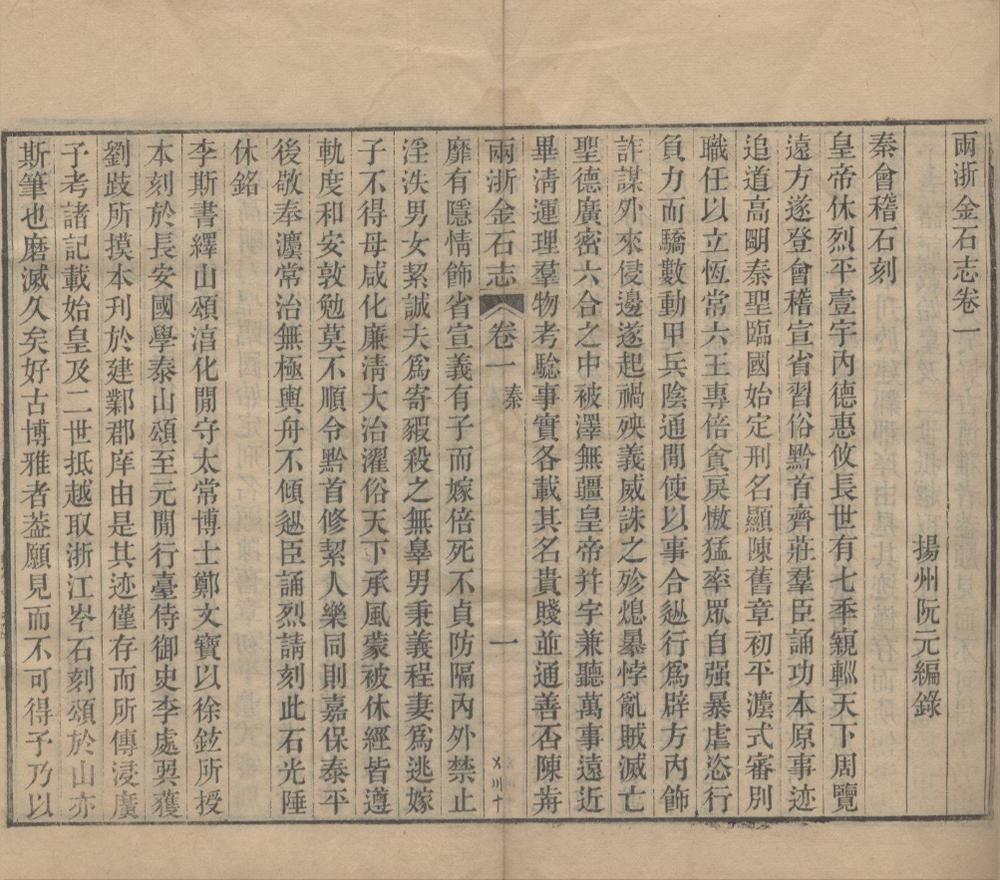 兩浙金石志卷一
揚州阮元編錄
秦會稽石刻
皇帝休烈平壹宇內德惠攸長世有七秊親輒天下周覽
遠方遂登會稽宣省習俗黔首齊莊羣臣誦功本原事迹
追道高朙秦聖臨國始定刑名顯陳舊章初平灋式審別
職任以立恆常六王專倍貪戾慠猛率眾自强暴虐恣行
負力而驕數動甲兵陰通閒使以事合從行爲辟方內飾
詐謀外來侵邊遂起禍殃義威誅之殄熄暴悖亂賊滅亡
聖德廣密六合之中被澤無疆皇帝幷宇兼聽萬事遠近
畢淸運理羣物考驗事實各載其名貴賤並通善否陳歬
兩浙金石志 卷一 秦 一
靡有隱情飾省宣義有子而嫁倍死不貞防隔內外禁止
淫泆男女絜誠夫爲寄豭殺之無辠男秉義程妻爲逃嫁
子不得母咸化廉淸大治濯俗天下承風蒙被休經皆遵
軌度和安敦勉莫不順令黔首修絜人樂同則嘉保泰平
後敬奉灋常治無極輿舟不傾從臣誦烈請刻此石光陲
休銘
李斯書繹山頌淯化閒守太常博士鄭文寶以徐鉉所授
本刻於長安國學泰山頌至元閒行臺侍御史李處巽獲
劉跂所摸本刊於建鄴郡庠由是其迹僅存而所傳浸廣
予考諸記載始皇及二世抵越取浙江岑石刻頌於山亦
斯筆也磨滅久矣好古博雅者葢願見而不可得予乃以